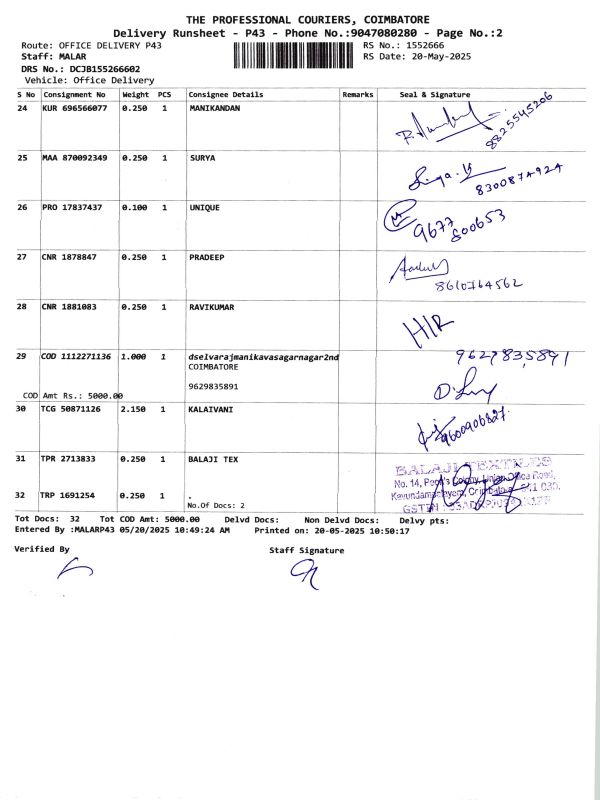 THE PROFESSIONAL COURIERS, COIMBATORE
Delivery Runsheet - P43 - Phone No.:9047080280 - Page No.:2
Route: OFFICE DELIVERY P43 RS No.: 1552666
Staff: MALAR RS Date: 20-May-2025
DRS No.: DCJB155266602
Vehicle: Office Delivery
S No Consignment No Weight PCS Consignee Details Remarks Seal & Signature
24 KUR 696566077 0.250 1 MANIKANDAN
8825545206
25 MAA 870092349 0.250 1 SURYA
8300874924
26 PRO 17837437 0.100 1 UNIQUE
9677
800653
27 CNR 1878847 0.250 1 PRADEEP
8610764562
28 CNR 1881083 0.250 1 RAVIKUMAR
H/R
29 COD 1112271136 1.000 1 dselvarajmanikavasagarnagar2nd
COIMBATORE
9629835891
COD Amt Rs.: 5000.00
30 TCG 50871126 2.150 1 KALAIVANI
9600906827
31 TPR 2713833 0.250 1 BALAJI TEX
BALAJI TEXTILES
No. 14, Colony, Union Office Road,
32 TRP 1691254 0.250 1 .
No.Of Docs: 2
Tot Docs: 32 Tot COD Amt: 5000.00 Delvd Docs: Non Delvd Docs: Delvy pts:
Entered By :MALARP43 05/20/2025 10:49:24 AM Printed on: 20-05-2025 10:50:17
Verified By Staff Signature